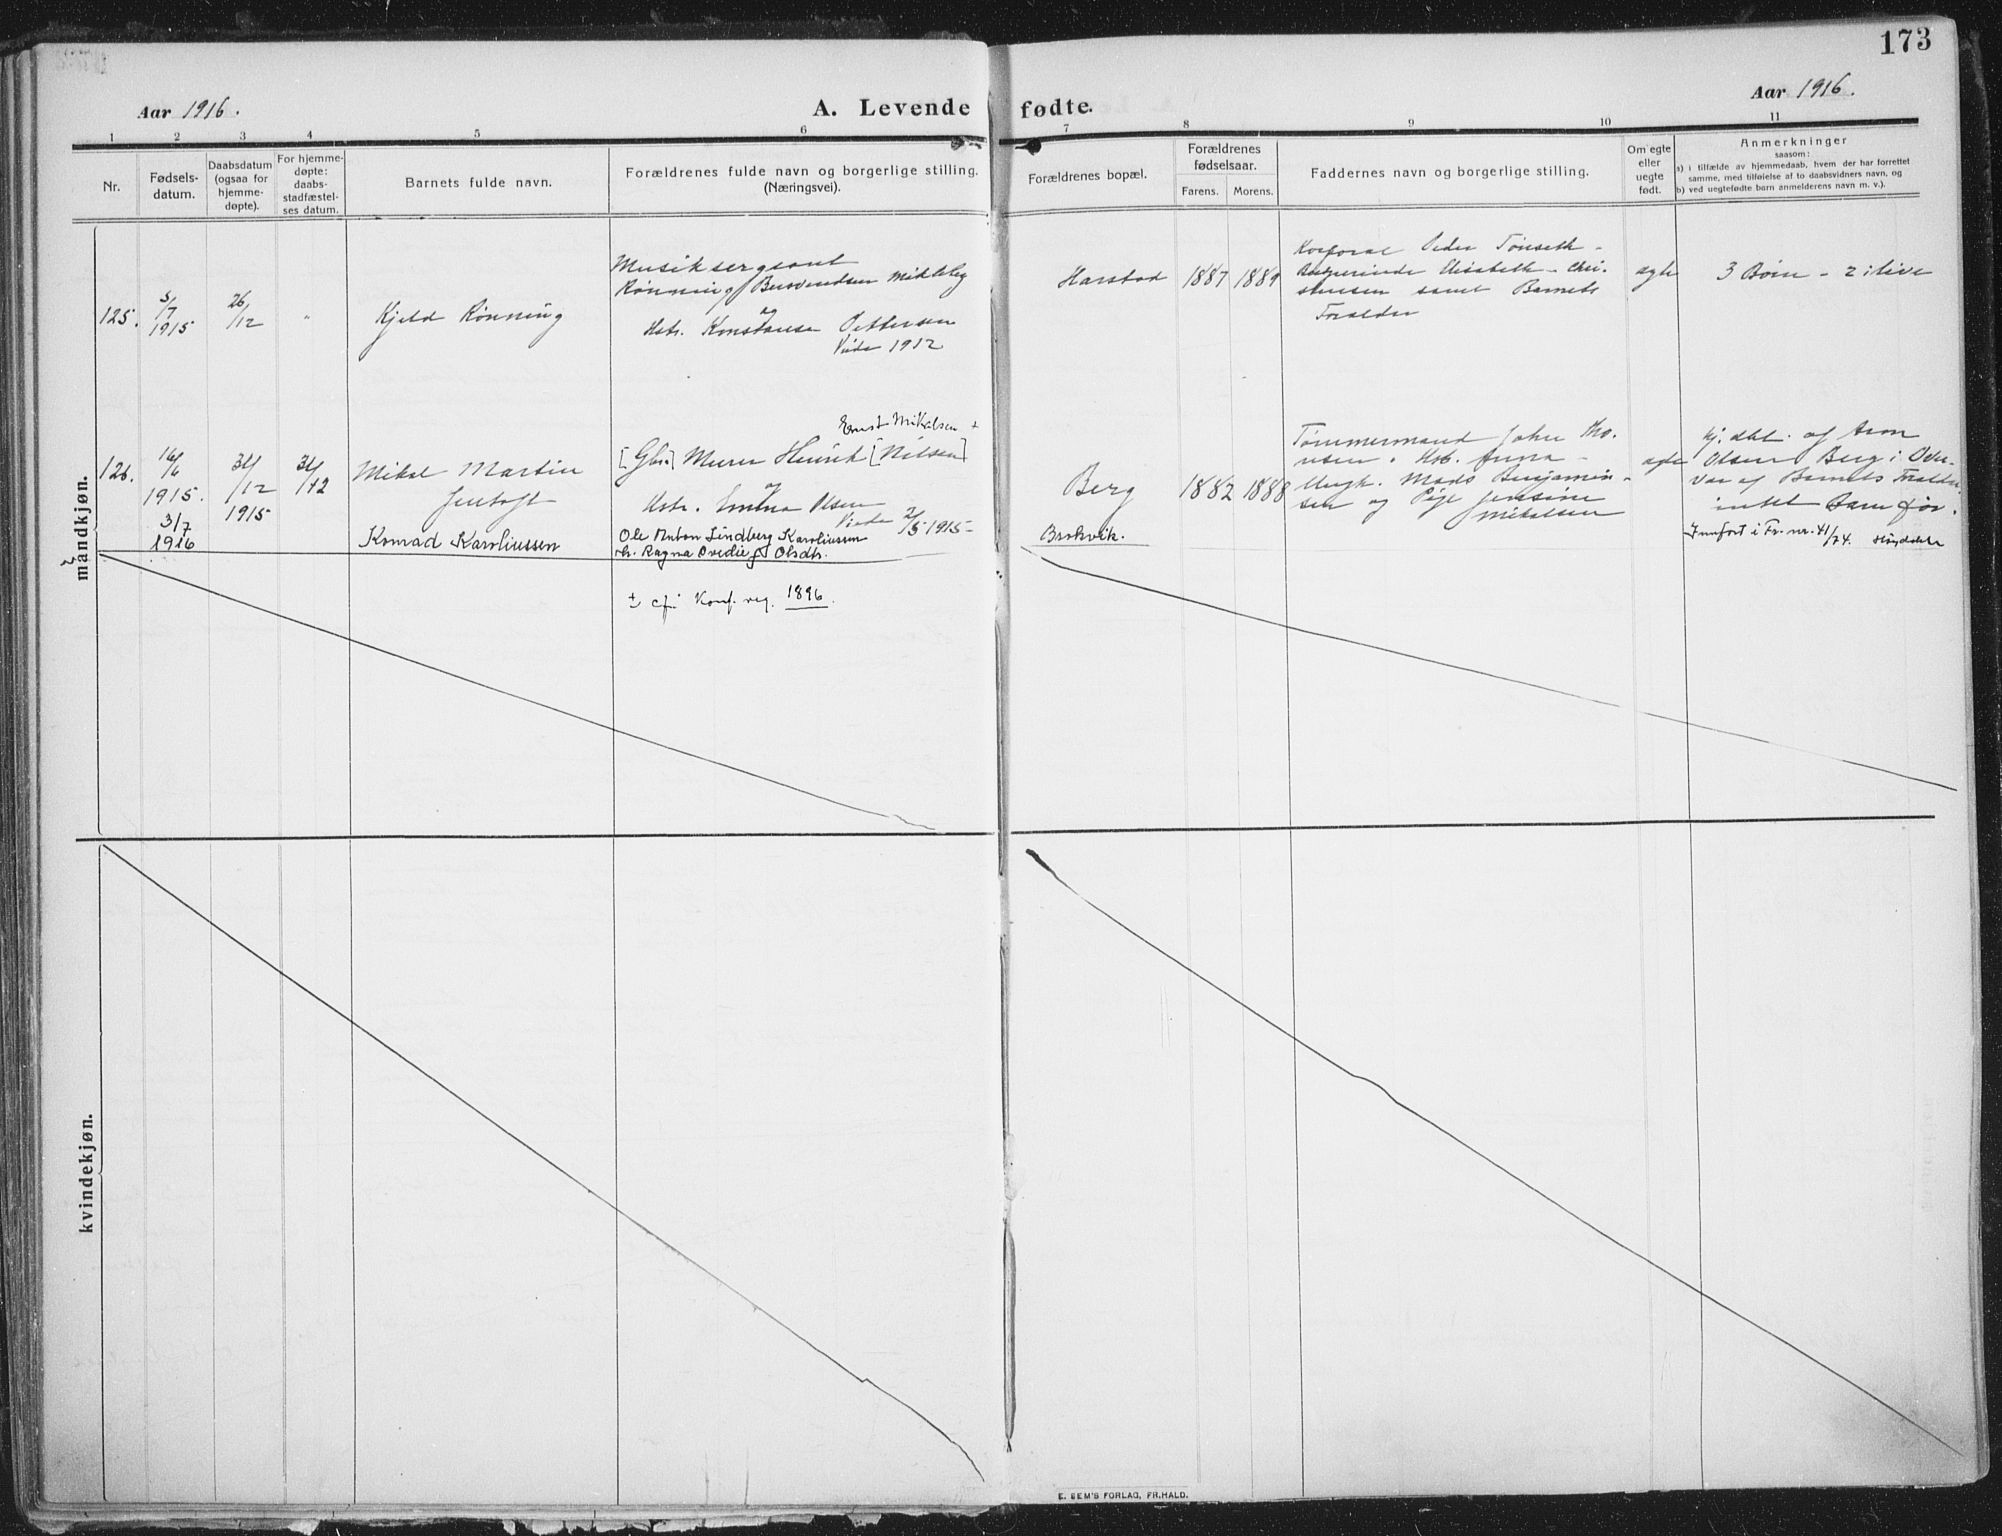 173
Aar 1916.
A. Levende fødte.
Aar 1916.
1 2 3 4 5 6 7 8 9 10 11
Nr.
Fødsels-
datum.
Daabsdatum
(ogsaa for
hjemme-
døpte).
For hjemme-
døpte:
daabs-
stadfæstel-
ses datum.
Barnets fulde navn.
Forældrenes fulde navn og borgerlige stilling.
(Næringsvei).
Forældrenes bopæl.
Forældrenes
fødselsaar.
Farens. Morens.
Faddernes navn og borgerlige stilling.
Om egte
eller
uegte
født.
Anmerkninger
saasom:
a) i tilfælde av hjemmedaab, hvem der har forrettet
samme, med tilføielse af to daabsvidners navn, og
b) ved uegtefødte barn anmelderens navn m. v.).
mandkjøn.
125.
5/7
1915
26/12
"
Kjeld Rønning
Musiksergeant
Rønning Midtlyng
og
Hstr. Konstanse Pettersen
Viede 1912
Harstad
1887 1889
Korporal Peder Tønseth -
Elisabeth Chri-
stensen samt Barnets
Forældre
ægte
3 Børn - 2 i live
126.
16/6
1915.
31/12
1915
31/12
Mikal Martin
Jentoft
Ernst Mikalsen +
[Gbr.] Murer Henrik [Nilsen]
og
Hstr. Emma Olsen
Viede 2/5 1915-
Berg
1882 1888
Tømmermand John Tho-
resen. Hst. Anna -
Ungk. Mads Benjamin-
sen og Pige Jensine
Mikalsen
ægte
Hj. dbt. af Aron
Olsen Berg i Over-
vær af Barnets Forældre
intet Barn før.
3/7
1916
Konrad Karoliussen
Ole Anton Lindberg Karoliussen
Ragna Ovedie Olsdtr.
Brokvik.
Innført i Fr. nr. 41/74.
+ cfr. Konf. reg. 1896.
kvindekjøn.
E. SEM'S FORLAG, FR.HALD.